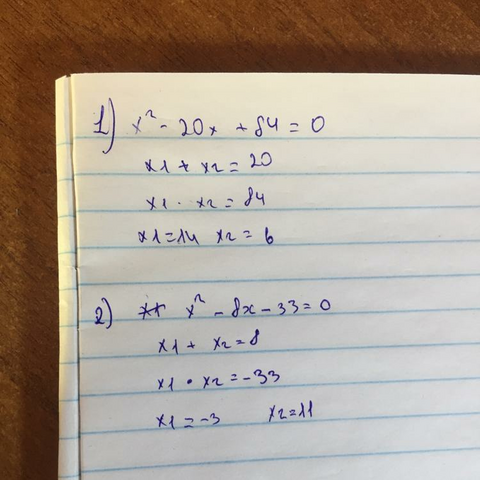 1) x² - 20x + 84 = 0
x1 + x2 = 20
x1 · x2 = 84
x1 = 14 x2 = 6
2) x² - 8x - 33 = 0
x1 + x2 = 8
x1 · x2 = -33
x1 = -3 x2 = 11